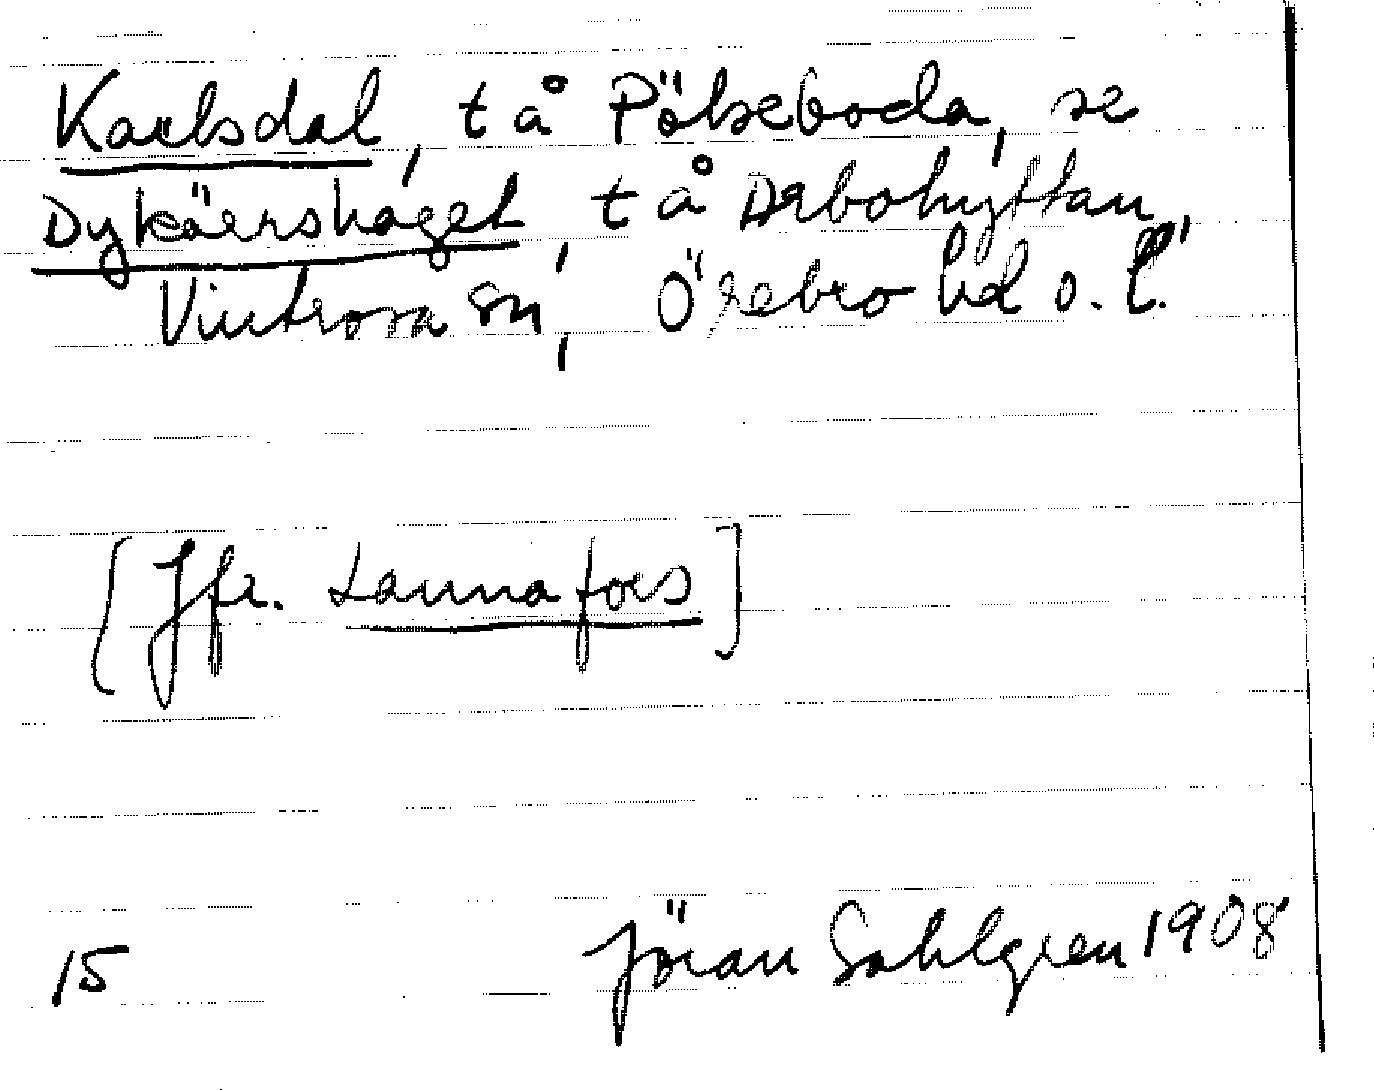 Karlsdal, t å Pölseboda, se
Dykärrshaget, t å Drbohyttan,
Vintrosa sn, Örebro hd o. l.
[Jfr. Lannafors]
15 Jöran Sahlgren 1908